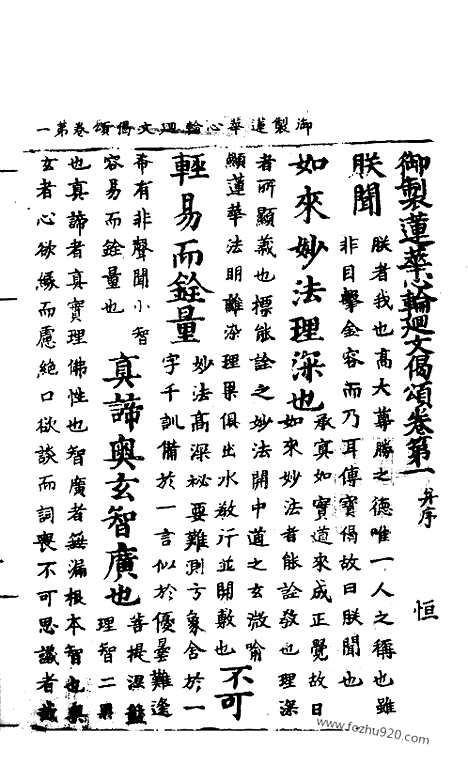 御製蓮華心輪廻文偈頌卷第一
御製蓮華心輪廻文偈頌卷第一 并序 恒
朕聞
朕者我也高大尊勝之德唯一人之稱也雖
非目擊金容而乃耳傳寶偈故曰朕聞也
如來妙法理深也
承真如實道來成正覺故曰
如來妙法者能詮教也理深
者所顯義也標能詮之妙法開中道之玄微喻
顯蓮華法明離染理果俱出水敷行並開敷也
不可
輕易而銓量
妙法高深祕要難測方象舍於一
字千訓備於一言似於優曇難逢
希有非聲聞小智
容易而銓量也
真諦奧玄智廣也
菩提涅盤
理智二果
也真諦者真實理佛性也智廣者無漏根本智也奧
玄者心欲緣而慮絕口欲談而詞喪不可思議者
www.fozhu920.com